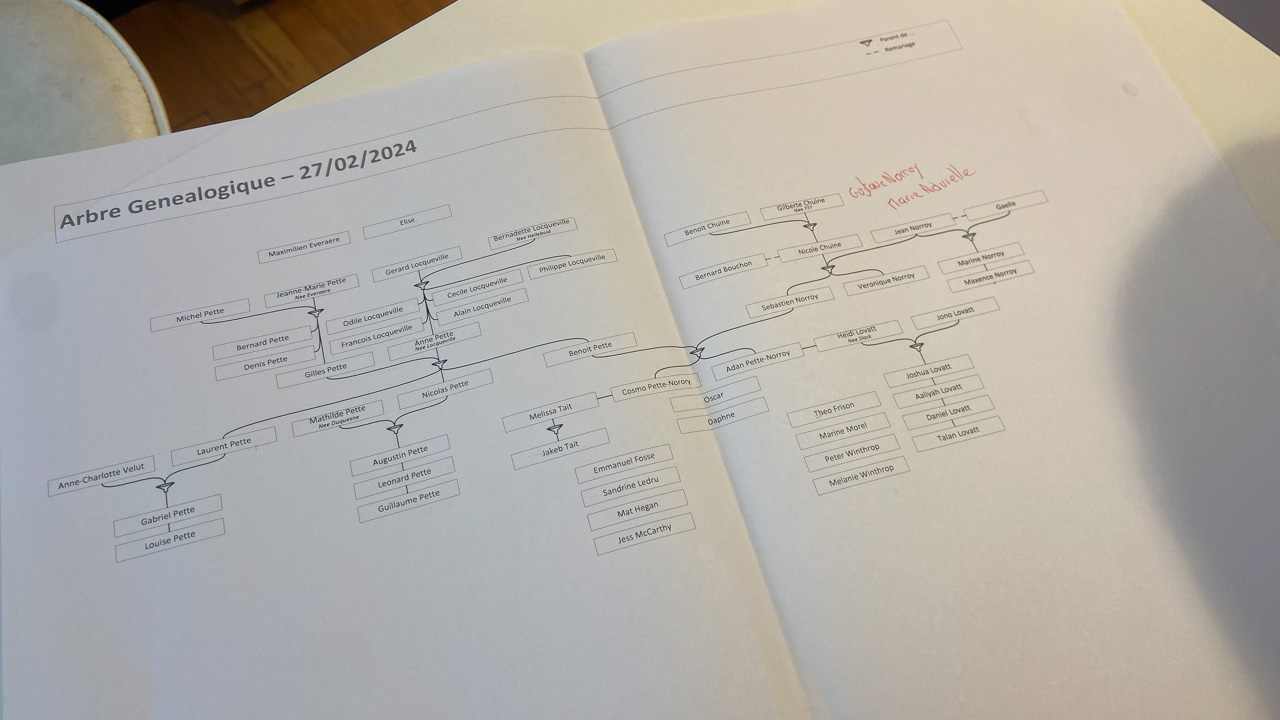 Parent de ...
Remariage
Arbre Genealogique – 27/02/2024
Maximilien Everaere
Elise
Bernadette Locqueville
Nee Hallebold
Gerard Locqueville
Philippe Locqueville
Jeanne-Marie Pette
Nee Everaere
Michel Pette
Cecile Locqueville
Odile Locqueville
Alain Locqueville
Bernard Pette
Francois Locqueville
Anne Pette
Nee Locqueville
Denis Pette
Gilles Pette
Benoit Pette
Nicolas Pette
Mathilde Pette
Nee Duquesne
Laurent Pette
Anne-Charlotte Velut
Augustin Pette
Leonard Pette
Guillaume Pette
Gabriel Pette
Louise Pette
Gustave Norroy
Marie
Gilberte Chuine
Nee ???
Benoit Chuine
Gaelle
Jean Norroy
Nicole Chuine
Bernard Bouchon
Marine Norroy
Maxence Norroy
Veronique Norroy
Sebastien Norroy
Jono Lovatt
Heidi Lovatt
Nee Slack
Adan Pette-Norroy
Cosmo Pette-Norory
Oscar
Daphne
Melissa Tait
Jakeb Tait
Joshua Lovatt
Aaliyah Lovatt
Daniel Lovatt
Talan Lovatt
Theo Frison
Marine Morel
Peter Winthrop
Melanie Winthrop
Emmanuel Fosse
Sandrine Ledru
Mat Hegan
Jess McCarthy